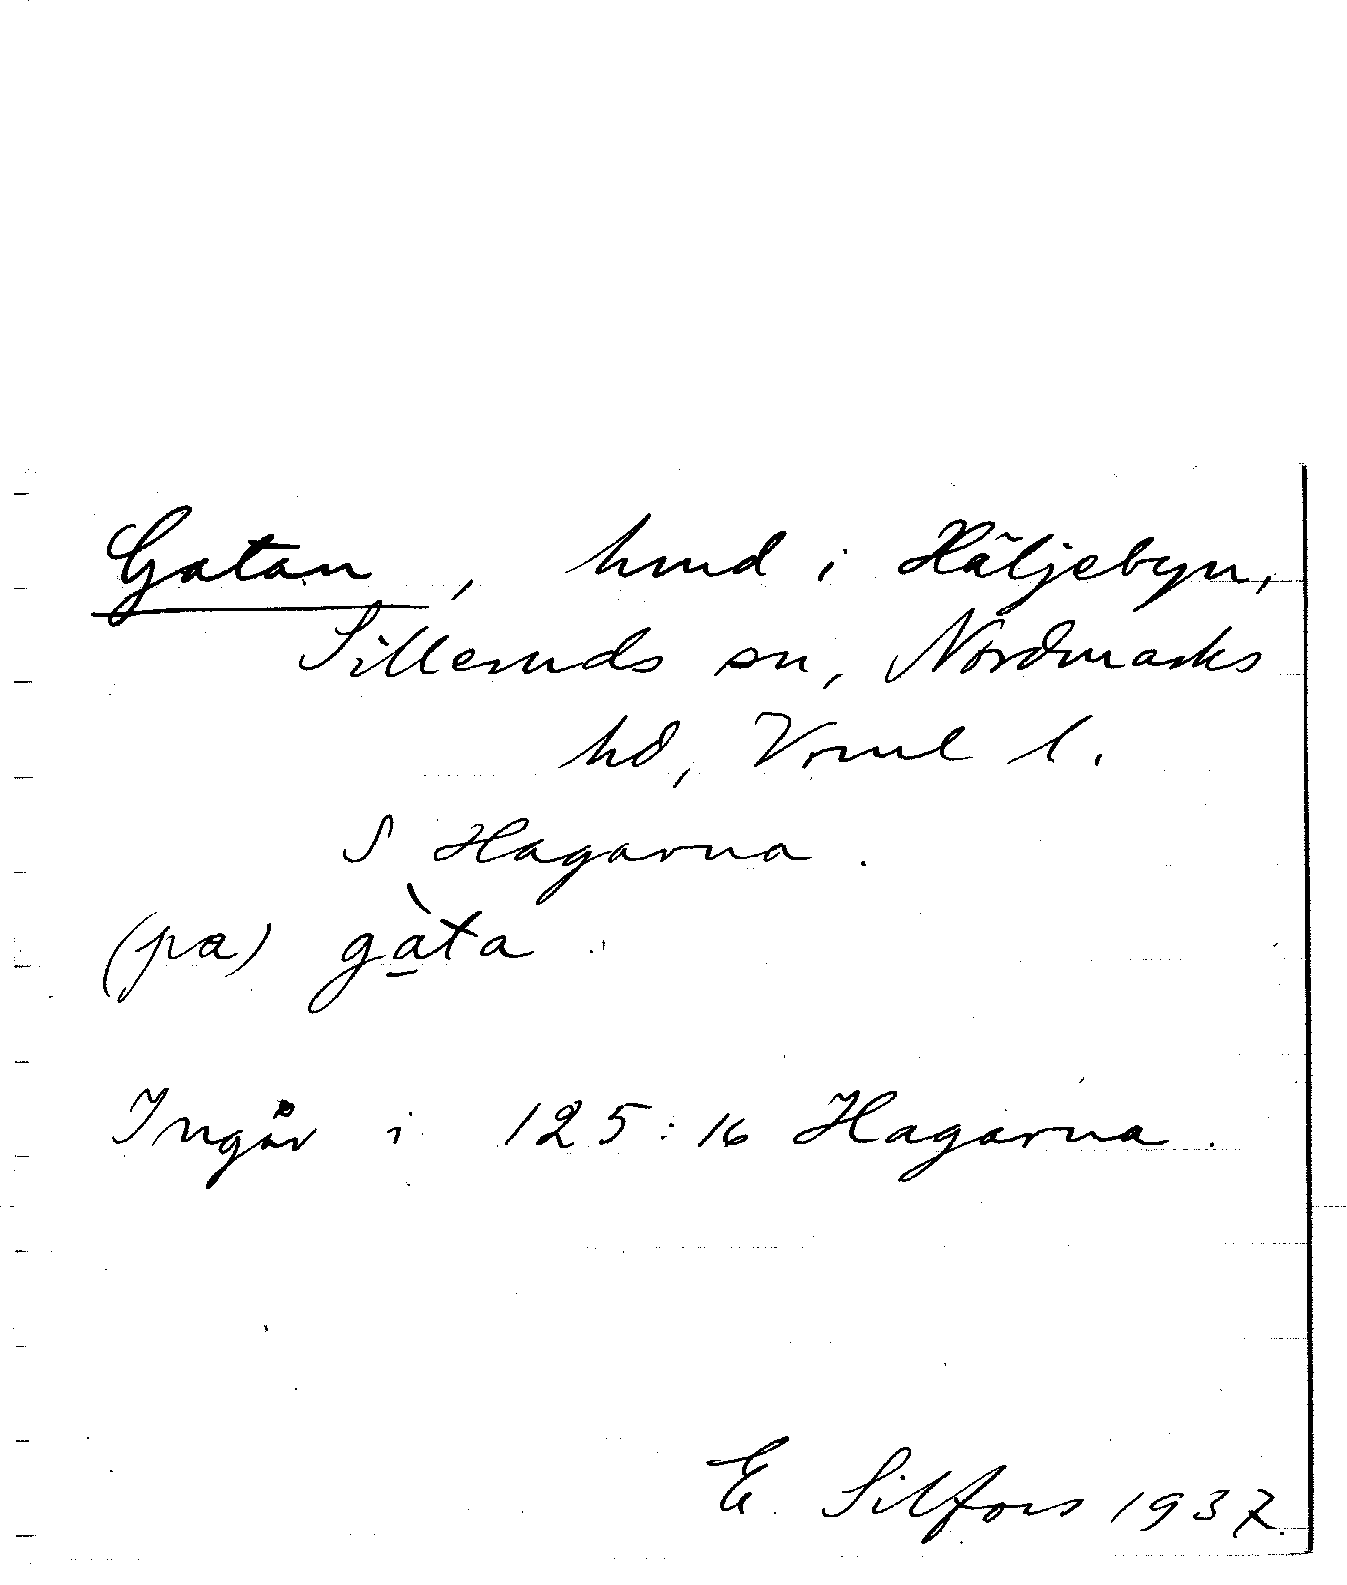 Gatan, hmd i Häljebyn,
Silleruds sn, Nordmarks
hd, Vrml l.
S Hagarna.
(pa) gàta
Ingår i 125:16 Hagarna.
E. Silfors 1937.